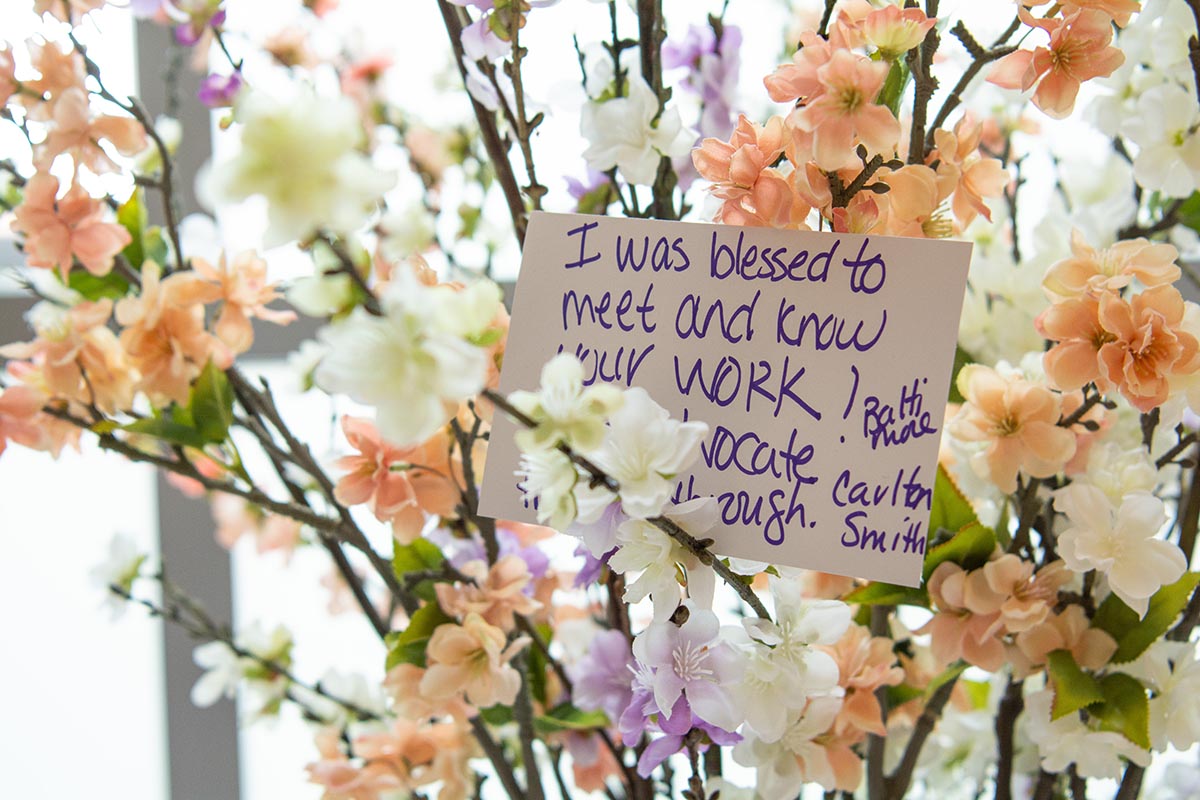 I was blessed to
meet and know
your WORK!
Balti
more
through.
Carlton
Smith